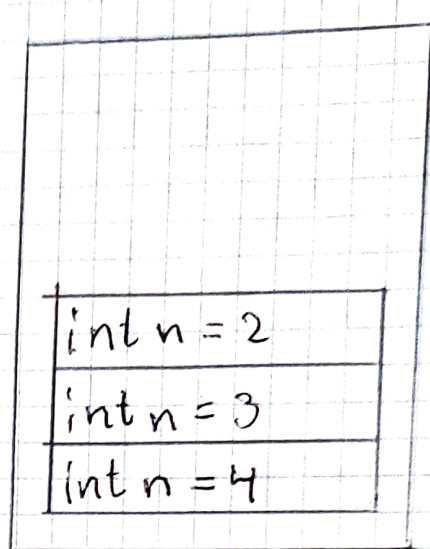 int n = 2
int n = 3
int n = 4